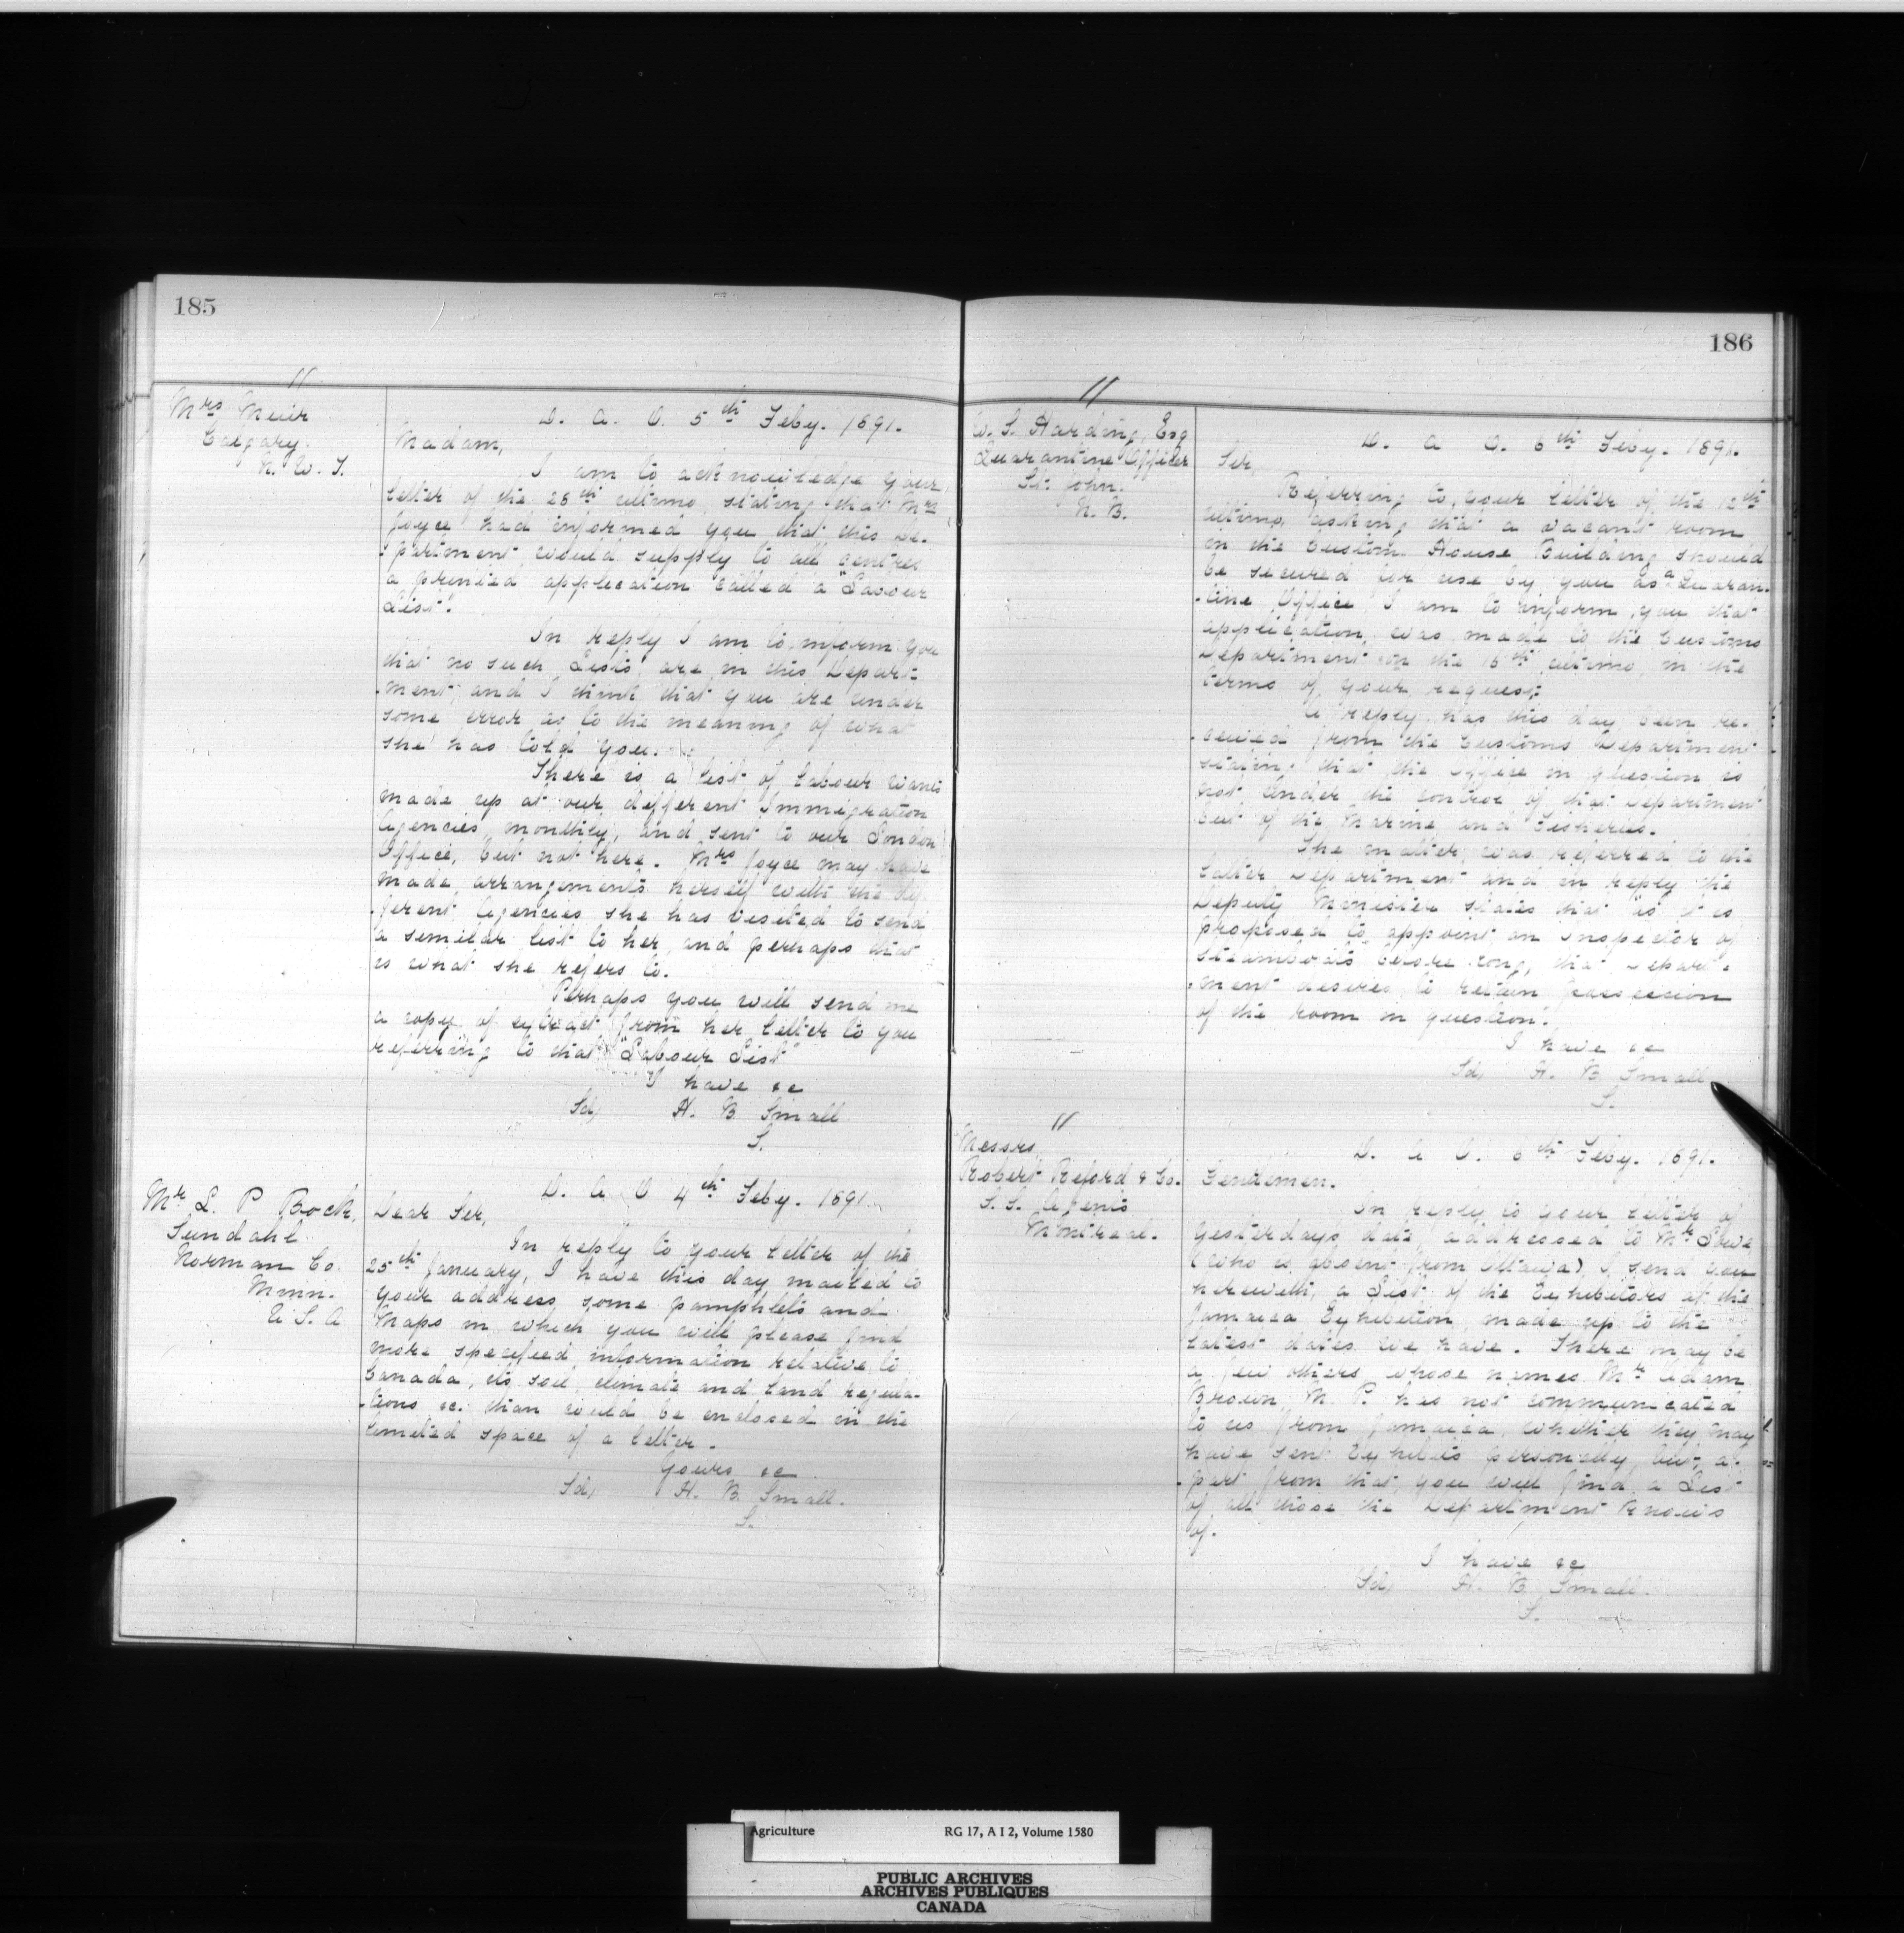 185
//
Mrs Muir
Calgary.
N. W. T.
D. A. O. 5th Feby. 1891.
Madam,
I am to acknowledge your
letter of the 28th ultimo, stating that Mrs
Joyce had informed you that this De-
-partment would supply to all centres
a printed application called a "Labour
List".
In reply I am to inform you
that no such Lists are in this Depart-
-ment, and I think that you are under
some error as to the meaning of what
she has told you.
There is a list of labour wants
made up at our different Immigration
Agencies, monthly, and sent to our London
Office, but not here. Mrs Joyce may have
made arrangements herself with the dif-
-ferent Agencies she has visited to send
a similar list to her, and perhaps that
is what she refers to.
Perhaps you will send me
a copy of extract from her letter to you
referring to that "Labour List"
I have &c
Sd, H. B. Small
S.
Mr L. P Bock,
Sundahl
Norman Co.
Minn.
U S. A
D. A O 4th Feby. 1891.
Dear Sir,
In reply to your letter of the
25th January, I have this day mailed to
your address some pamphlets and
Maps in which you will please find
more specified information relative to
Canada, its soil, climate and land regula-
-tions &c. than could be enclosed in the
limited space of a letter.
Yours &c
Sd, H. B. Small.
S.
186
//
W. S. Harding, Esq
Quarantine Officer
St. John.
N. B.
D. A O. 6th Feby. 1891.
Sir,
Referring to your letter of the 12th
ultimo, asking that a vacant room
in the Custom House Building should
be secured for use by you as a Quaran-
-tine Office, I am to inform you that
application was made to the Customs
Department on the 15th ultimo in the
terms of your request.
A reply has this day been re-
-ceived from the Customs Department
stating that the Office in question is
not under the control of that Department
but of the Marine and Fisheries.
The matter was referred to the
latter Department and in reply the
Deputy Minister states that "as it is
proposed to appoint an Inspector of
Steamboats before long, that Depart-
-ment desires to retain possession
of the room in question".
I have &c
Sd, H. B Small
S.
//
Messrs.
Robert Reford & Co.
S. S. Agents
Montreal.
D. A O. 6th Feby. 1891.
Gentlemen.
In reply to your letter of
yesterday's date, addressed to Mr Lowe
(who is absent from Ottawa), I send you
herewith, a List of the Exhibitors at the
Jamaica Exhibition, made up to the
latest dates we have. There may be
a few others whose names Mr Adam
Brown, M. P. has not communicated
to us from Jamaica, whether they may
have sent Exhibits personally, but, a-
-part from that, you will find a List
of all those the Department knows
of.
I have &c
Sd, H. B. Small.
S.
Agriculture RG 17, A I 2, Volume 1580
PUBLIC ARCHIVES
ARCHIVES PUBLIQUES
CANADA